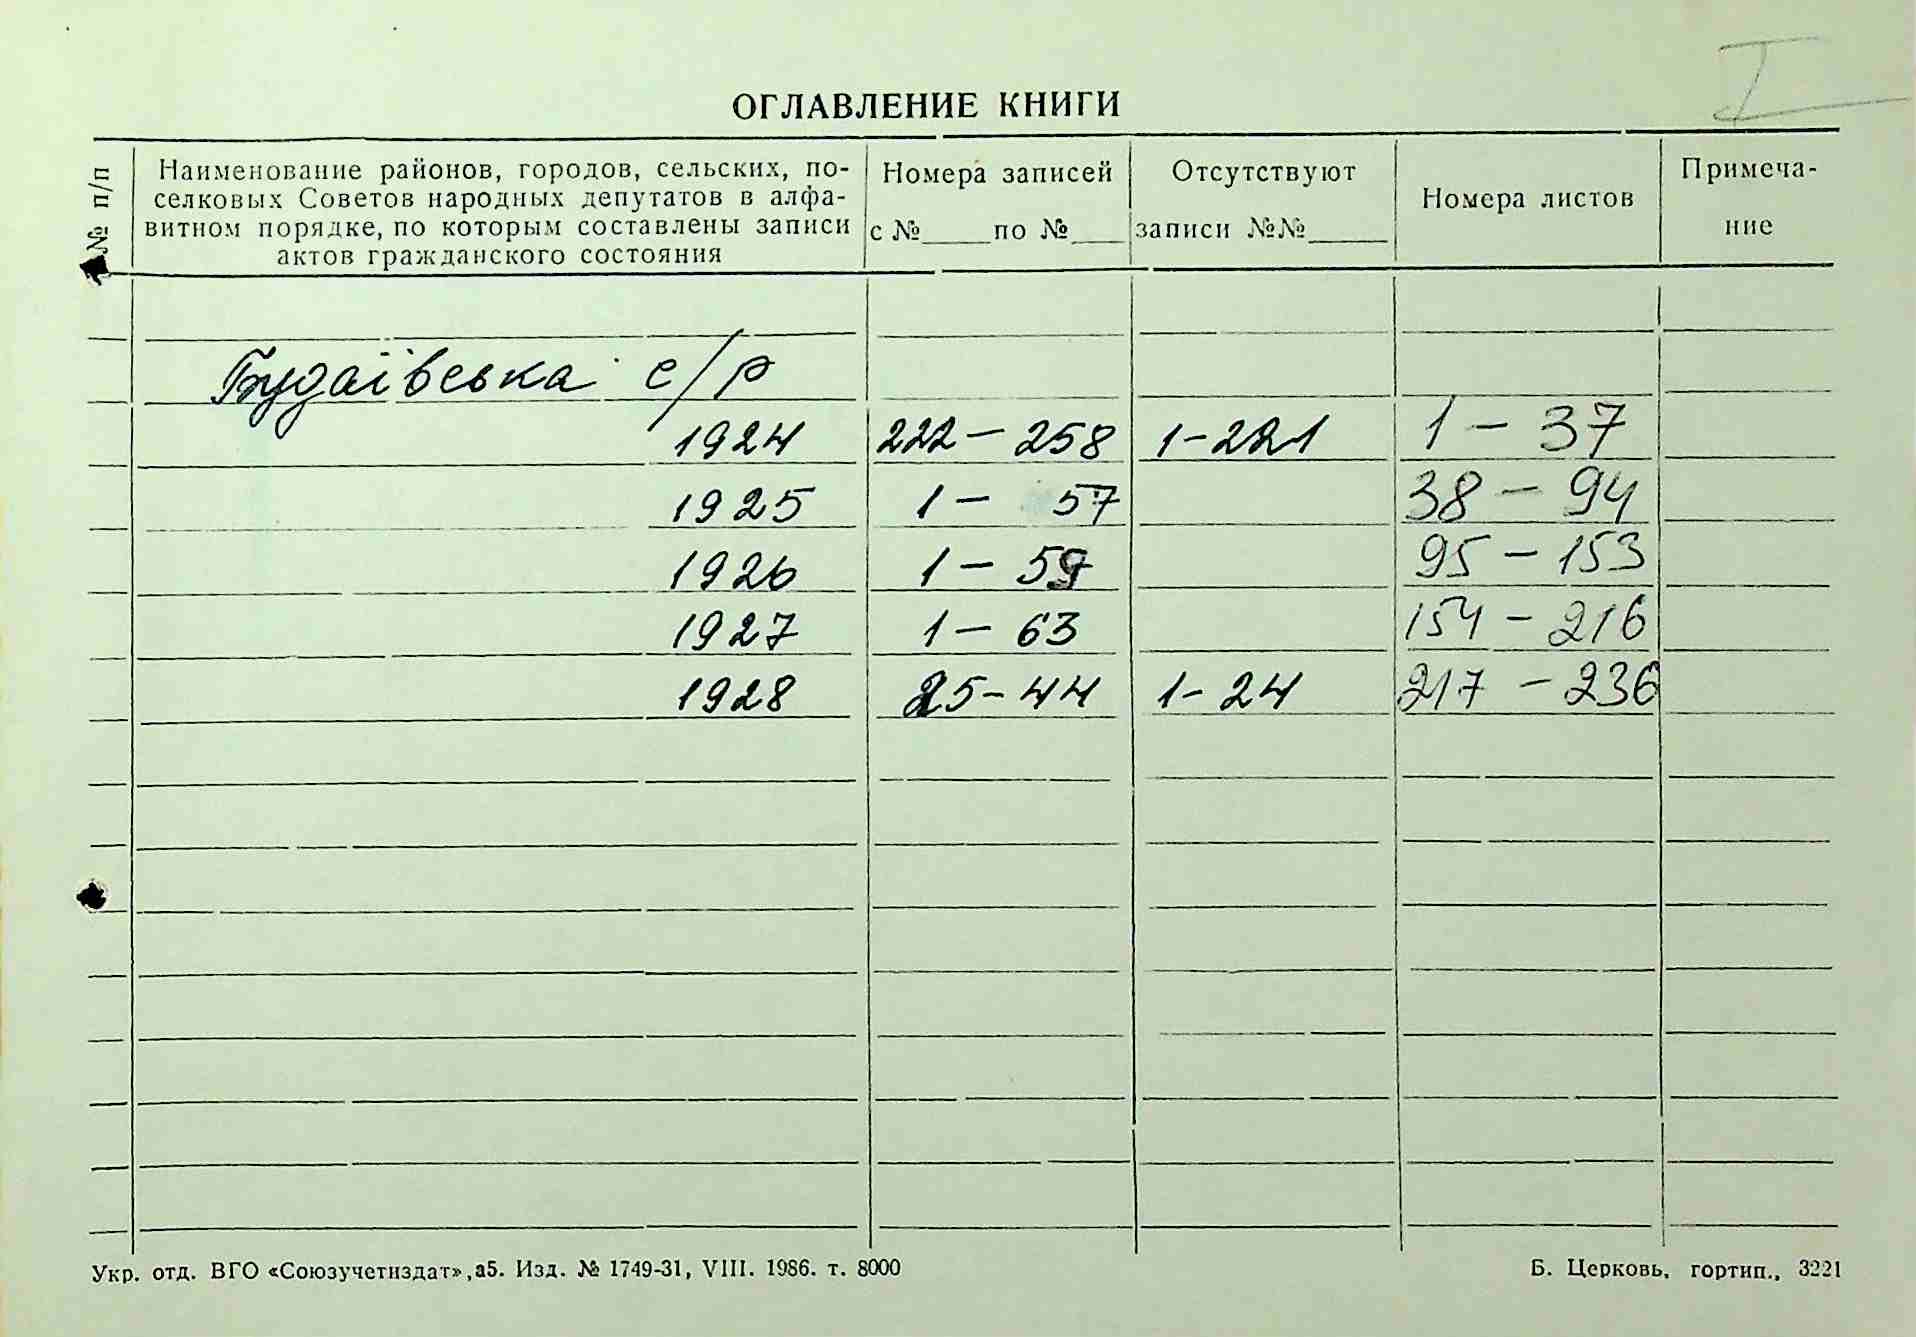 I
ОГЛАВЛЕНИЕ КНИГИ
№№ п/п
Наименование районов, городов, сельских, по-
селковых Советов народных депутатов в алфа-
витном порядке, по которым составлены записи
актов гражданского состояния
Номера записей
с №____ по №____
Отсутствуют
записи №№____
Номера листов
Примеча-
ние
Будаївська с/р
1924 222 – 258 1 – 221 1 – 37
1925 1 – 57 38 – 94
1926 1 – 59 95 – 153
1927 1 – 63 154 – 216
1928 25 – 44 1 – 24 217 – 236
Укр. отд. ВГО «Союзучетиздат», а5. Изд. № 1749-31, VIII. 1986. т. 8000
Б. Церковь, гортип., 3221